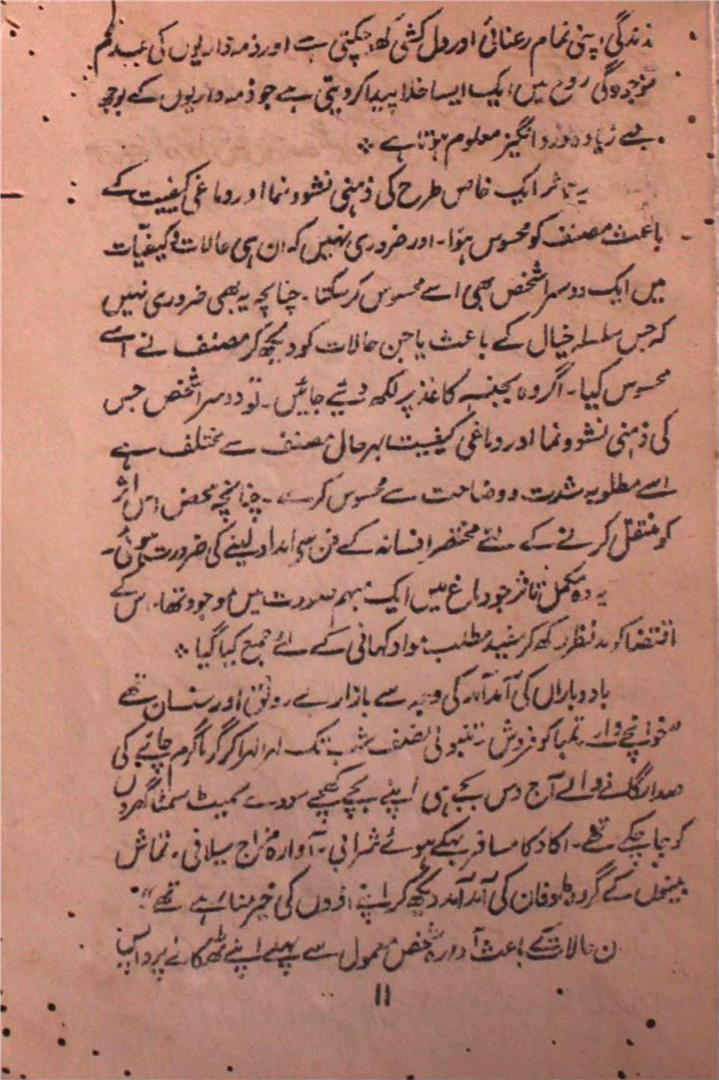 زندگی اپنی تمام رعنائی اور دل کشی کھو چکتی ہے اور ذمہ داریوں کی عدم
موجودگی روح میں ایک ایسا خلا پیدا کر دیتی ہے جو ذمہ داریوں کے بوجھ
سے زیادہ درد انگیز معلوم ہوتا ہے ٭
یہ تاثر ایک خاص طرح کی ذہنی نشوونما اور دماغی کیفیت کے
باعث مصنف کو محسوس ہؤا۔ اور ضروری نہیں کہ ان ہی حالات و کیفیّات
میں ایک دوسرا شخص بھی اسے محسوس کر سکتا۔ چنانچہ یہ بھی ضروری نہیں
کہ جس سلسلہ خیال کے باعث یا جن حالات کو دیکھ کر مصنف نے اسے
محسوس کیا۔ اگر وہ بجنسہٖ کاغذ پر لکھ دئیے جائیں۔ تو دوسرا شخص جس
کی ذہنی نشوونما اور دماغی کیفیت بہرحال مصنف سے مختلف ہے
اسے مطلوبہ شدت و وضاحت سے محسوس کرے۔ چنانچہ محض اس اثر
کو منتقل کرنے کے لئے مختصر افسانہ کے فن سے امداد لینے کی ضرورت ہوئی۔
یہ وہ مکمل تاثر جو دماغ میں ایک مبہم صورت میں موجود تھا۔ اس کے
اقتضا کو مدنظر رکھ کر مفید مطلب مواد کہانی کے لئے جمع کیا گیا ٭
باد و باراں کی آمد آمد کی وجہ سے بازار بے رونق اور سنسان تھے
خوانچے والے۔ تمباکو فروش۔ تنبولی نصف شب تک لہرا لہرا کر گرما گرم چائے کی
صدا لگانے والے آج دس بجے ہی اپنے بچے کھچے سودے سمیٹ سمٹا گھروں
کو جا چکے تھے۔ اکا دکا مسافر بہکے ہوئے شرابی۔ آوارہ مزاج سیلانی۔ تماش
بینوں کے گروہ طوفان کی آمد آمد دیکھ کر اپنے اڈوں کی خیر منا رہے تھے"۔
ان حالات کے باعث آوارہ شخص معمول سے پہلے اپنے ٹھکانے پر واپس
۱۱